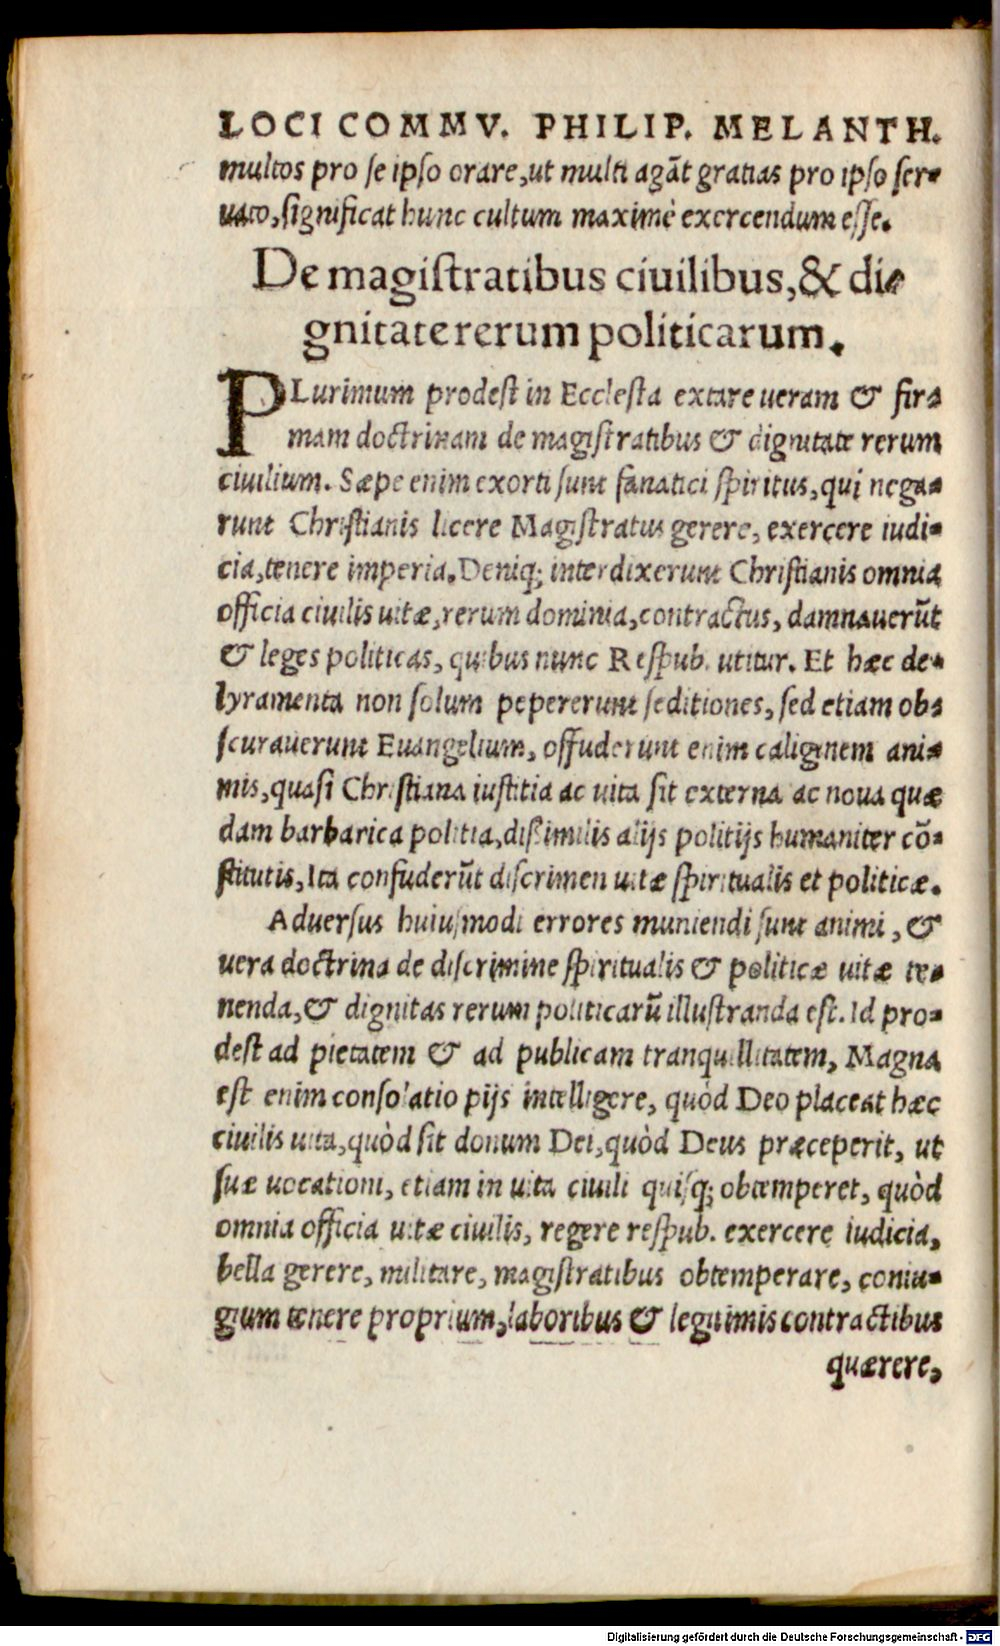 LOCI COMMV. PHILIP. MELANTH.
multos pro se ipso orare, ut multi agãt gratias pro ipso ser-
uato, significat hunc cultum maximè exercendum esse.
De magistratibus ciuilibus, & di-
gnitate rerum politicarum.
PLurimum prodest in Ecclesia extare ueram & fir-
mam doctrinam de magistratibus & dignitate rerum
ciuilium. Sæpe enim exorti sunt fanatici spiritus, qui nega-
runt Christianis licere Magistratus gerere, exercere iudi-
cia, tenere imperia. Deniq; interdixerunt Christianis omnia
officia ciuilis uitæ, rerum dominia, contractus, damnauerũt
& leges politicas, quibus nunc Respub. utitur. Et hæc de-
lyramenta non solum pepererunt seditiones, sed etiam ob-
scurauerunt Euangelium, offuderunt enim caliginem ani-
mis, quasi Christiana iustitia ac uita sit externa ac noua quæ
dam barbarica politia, dißimilis alijs politijs humaniter cõ-
stitutis, Ita confuderũt discrimen uitæ spiritualis et politicæ.
Aduersus huiusmodi errores muniendi sunt animi, &
uera doctrina de discrimine spiritualis & politicæ uitæ te-
nenda, & dignitas rerum politicarũ illustranda est. Id pro-
dest ad pietatem & ad publicam tranquillitatem, Magna
est enim consolatio pijs intelligere, quòd Deo placeat hæc
ciuilis uita, quòd sit donum Dei, quòd Deus præceperit, ut
suæ uocationi, etiam in uita ciuili quisq; obtemperet, quòd
omnia officia uitæ ciuilis, regere respub. exercere iudicia,
bella gerere, militare, magistratibus obtemperare, coniu-
gium tenere proprium, laboribus & legitimis contractibus
quærere,
Digitalisierung gefördert durch die Deutsche Forschungsgemeinschaft - DFG